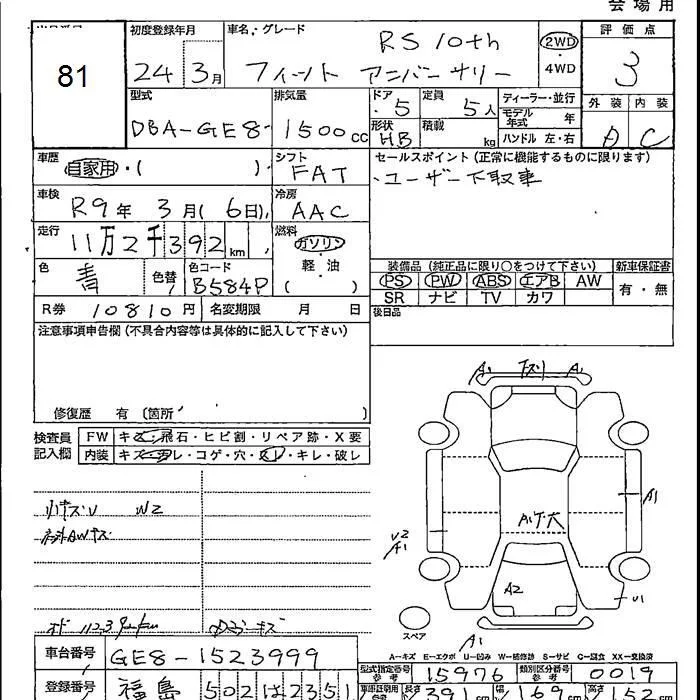 会場用
81
初度登録年月 車名・グレード 評価点
RS 10th 2WD
24 3月 フィット アニバーサリー 4WD 3
型式 排気量 ドア 定員 ディーラー・並行 外装 内装
DBA-GE8 1500cc 5 5人 モデル年式 年 A C
形状 HB 積載 kg ハンドル 左・右
車歴 自家用・( ) シフト FAT セールスポイント (正常に機能するものに限ります)
・ユーザー下取車
車検 R9年 3月(6日) 冷房 AAC
走行 11万2千392km 燃料 ガソリン
軽・油
( )
色 青 色替 色コード B584P
装備品 (純正品に限り○をつけて下さい) 新車保証書
PS PW ABS エアB AW 有・無
SR ナビ TV カワ
R券 10810円 名変期限 月 日 後日品
注意事項申告欄 (不具合内容等は具体的に記入して下さい)
修復歴 有 (箇所 )
検査員記入欄 FW キズ・飛石・ヒビ割・リペア跡・X要
内装 キズ・ヨゴレ・コゲ・穴・スレ・キレ・破レ
A1 A1
A1
U2
A1
A2
U1
A1
W2
スペア
A-キズ E-エクボ U-凹み W-補修跡 S-サビ C-腐食 XX-交換済
車台番号 GE8-1523999
型式指定番号 参考 15976 類別区分番号 参考 0019
登録番号 福島 502
長さ 391cm 幅 169cm 高さ 152cm